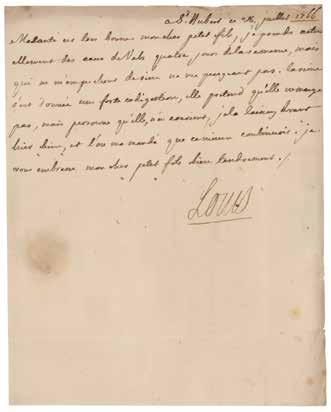 a St Hubert ce juillet 1766
Madame est bien bonne mon cher petit fils, je prends actu
ellement des eaux de Vals quatre jours de la semaine, mais
qui ne m'empechent de rien ne me purgeant pas. la reine
s'est donnée une forte indigestion, elle pretend qu'elle ne mange
pas, mais personne qu'elle, n'en convient, je la laissay avant
hier bien, et l'on me mande que ce mieux continuoit; je
vous embrasse, mon cher petit fils bien tendrement./.
Louis